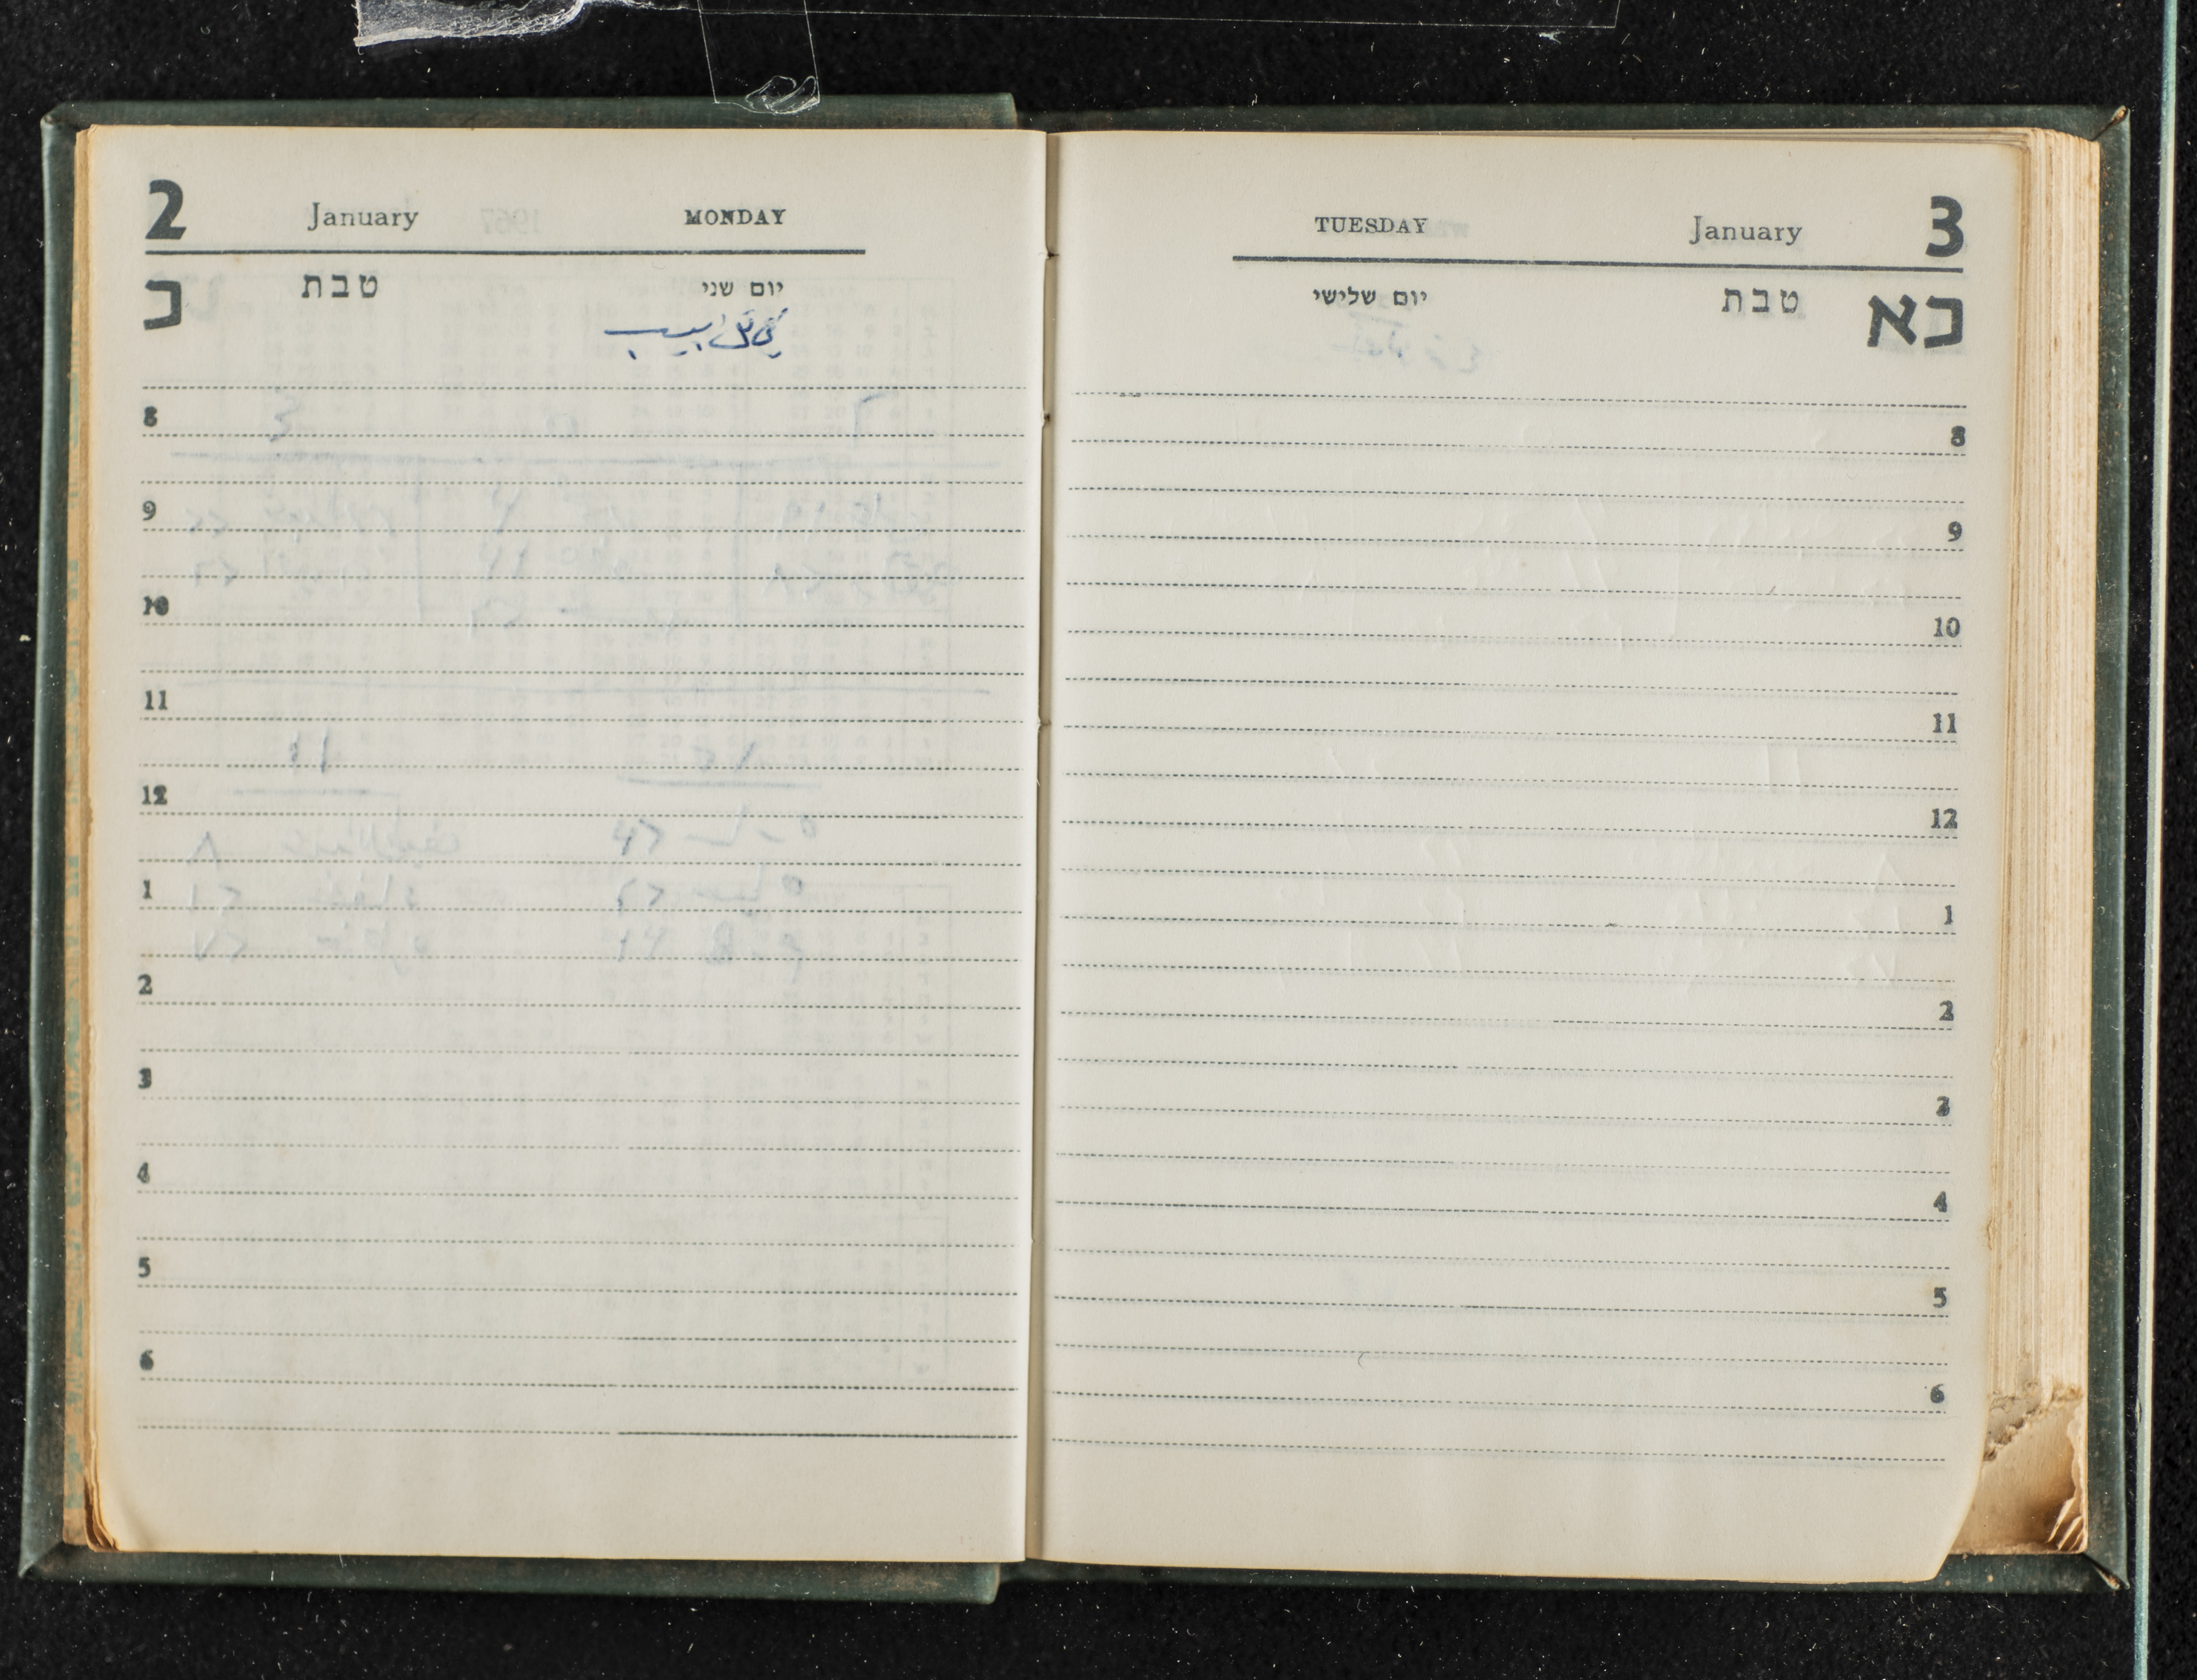 2 January MONDAY
כ טבת יום שני
8
9
10
11
12
1
2
3
4
5
6
TUESDAY January 3
יום שלישי טבת כא
8
9
10
11
12
1
2
3
4
5
6